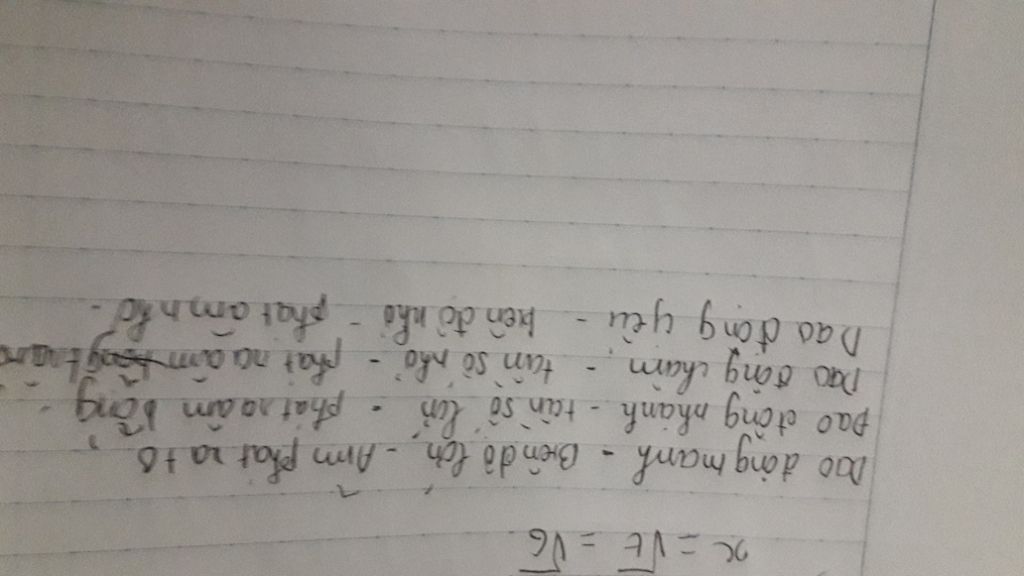 x = √t = √6
Dao động mạnh - Biên độ lớn - Âm phát ra to
Dao động nhanh - tần số lớn - phát ra âm bổng
Dao động chậm - tần số nhỏ - phát ra âm
Dao động yếu - biên độ nhỏ - phát âm nhỏ.